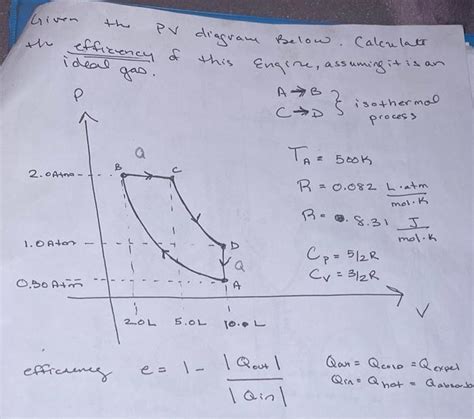 Given the PV diagram Below. Calculate
the efficiency of this Engine, assuming it is an
ideal gas.
A → B } isothermal
C → D } process
P
Q
B
C
2.0 Atm
T_A = 500K
R = 0.082 L·atm / mol·K
R = 8.31 J / mol·K
1.0 Atm
D
Q
C_P = 5/2 R
C_V = 3/2 R
0.50 Atm
A
V
2.0L 5.0L 10.0L
efficiency e = 1 - |Qout| / |Qin|
Qout = Qcold = Qexpel
Qin = Qhot = Qabsorb